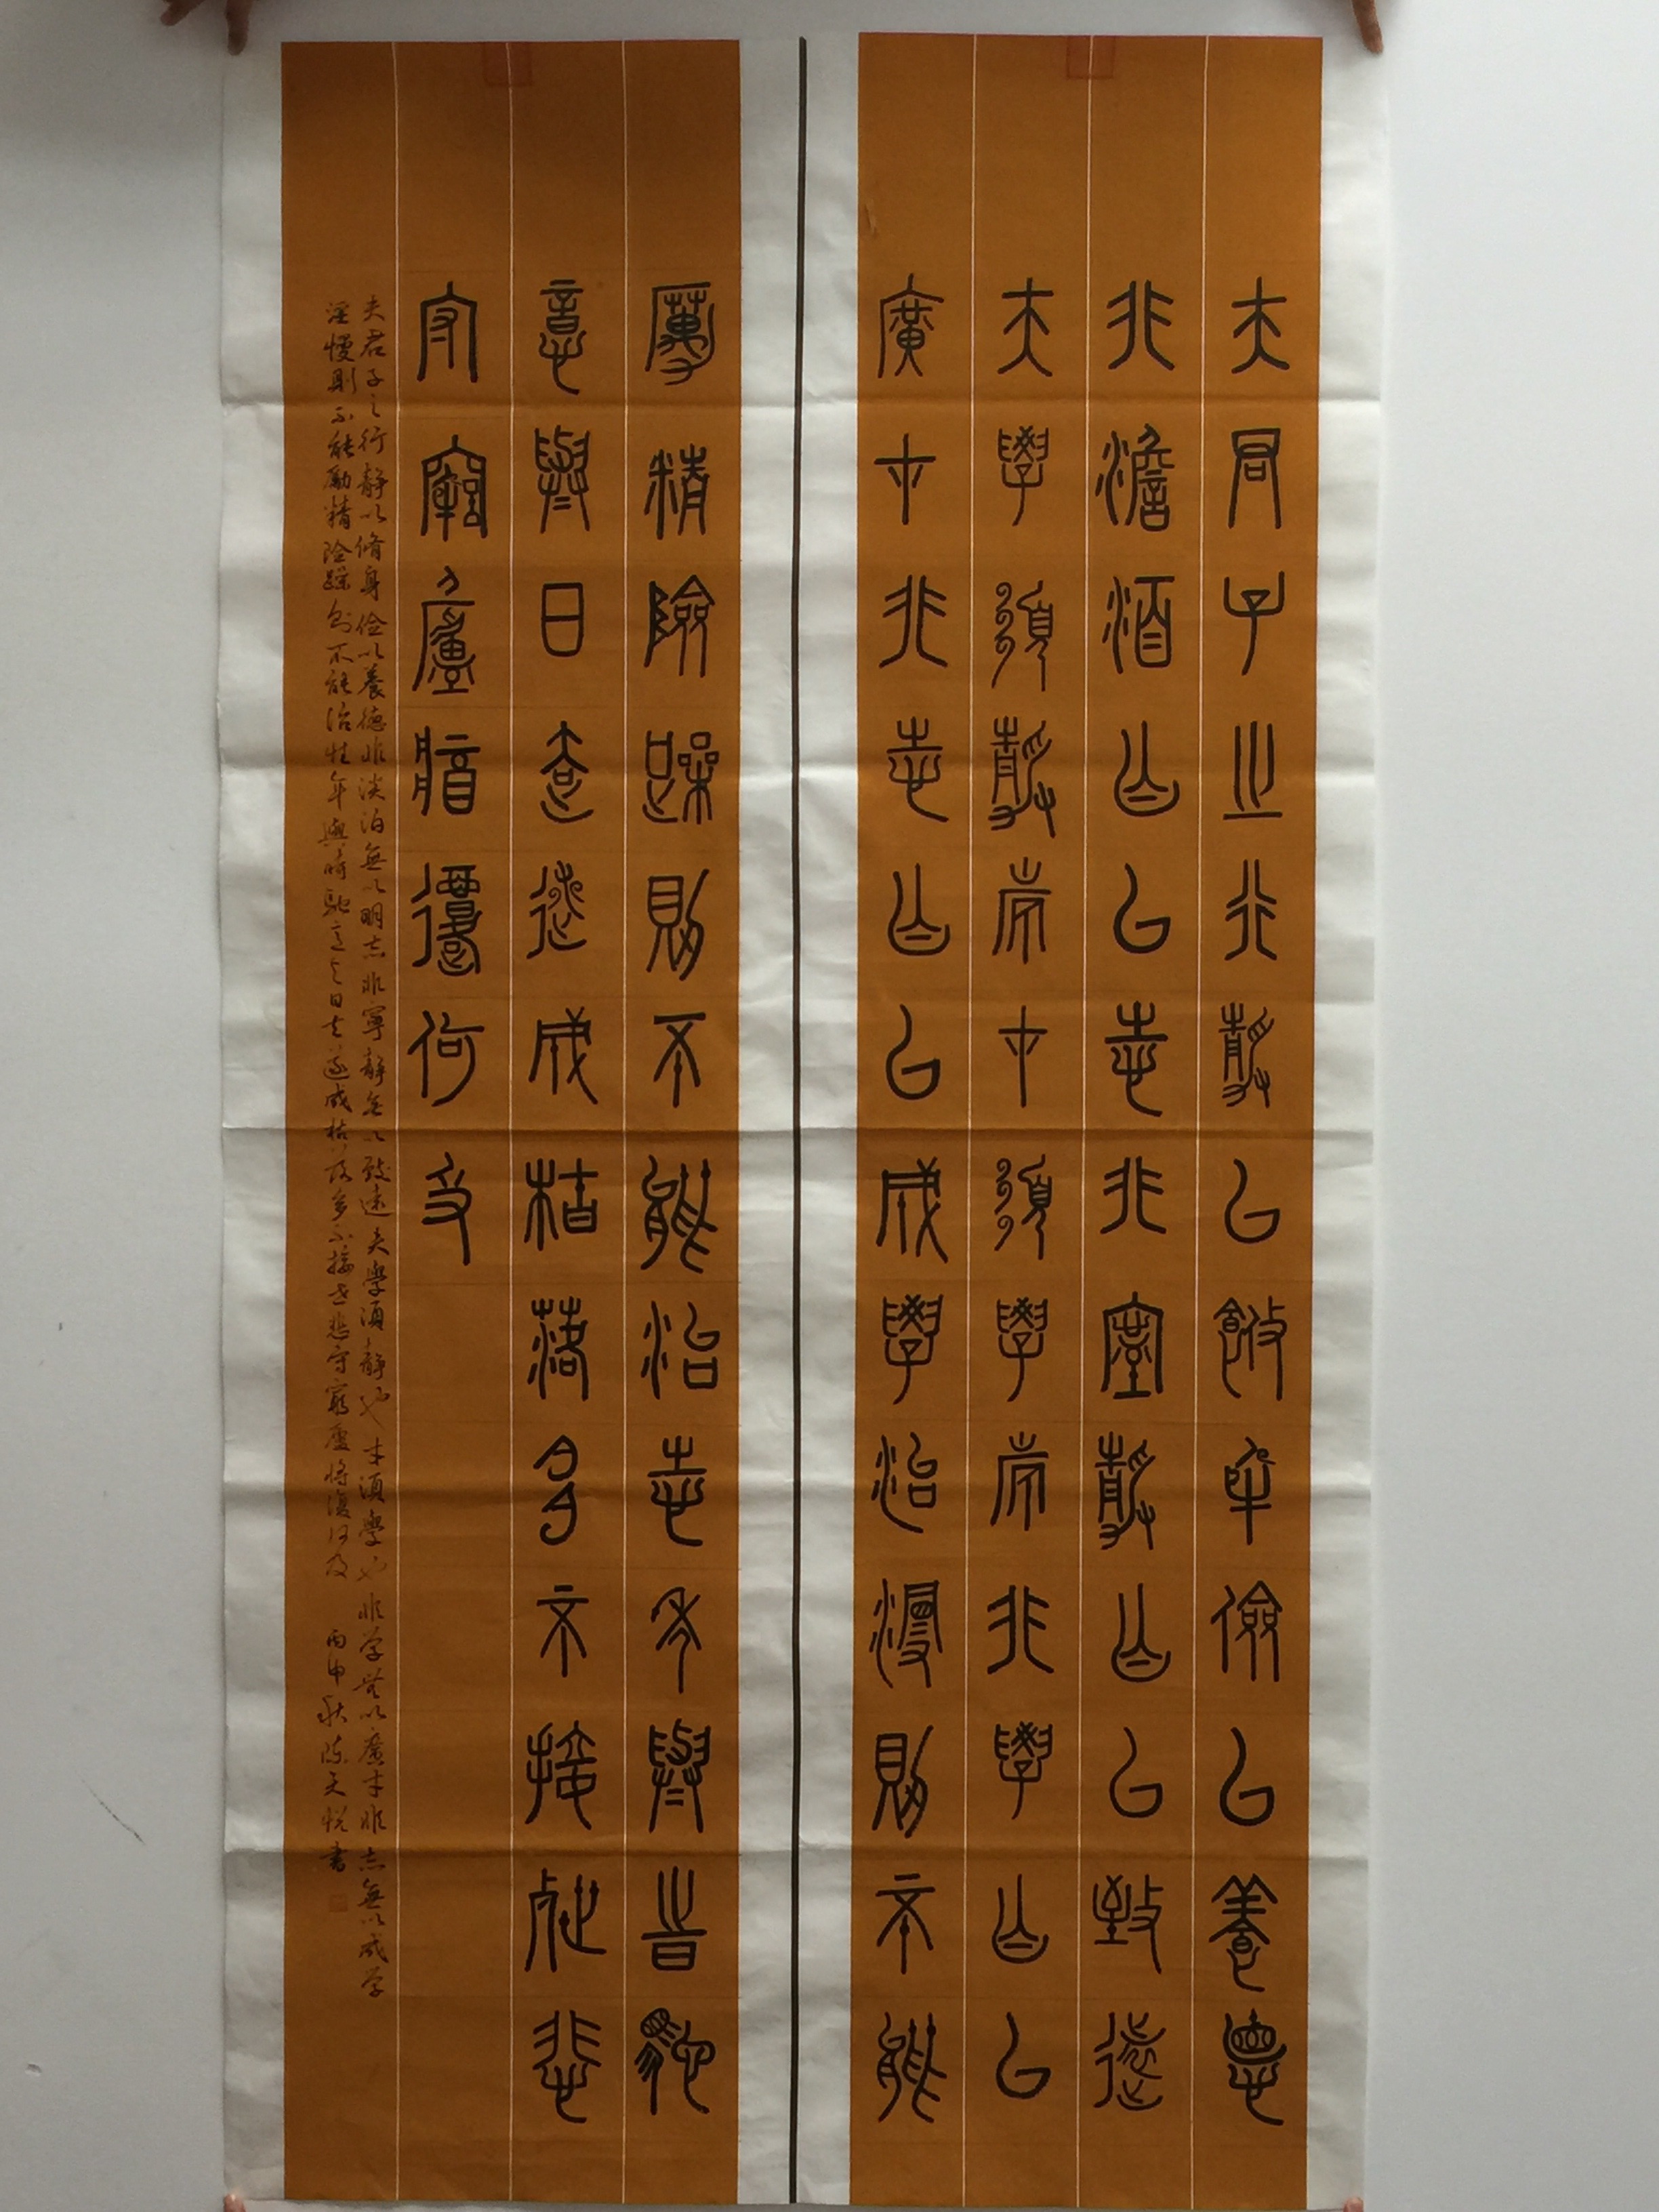 夫君子之行靜以脩身儉以養悳
非澹泊無以志非寧靜無以致遠
夫學須靜也才須學也非學無以
廣才非志無以成學治慢則不能
厲精險躁則不能治志年與時馳
意與日去遂成枯落多不接世悲
守窮廬將復何及
夫君子之行靜以脩身儉以養德非淡泊無以明志非寧靜無以致遠夫學須靜也才須學也非学無以廣才非志無以成学
淫慢則不能勵精險躁則不能治性年與時馳意与日去遂成枯落多不接世悲守窮廬將復何及 丙申秋陈天悦書